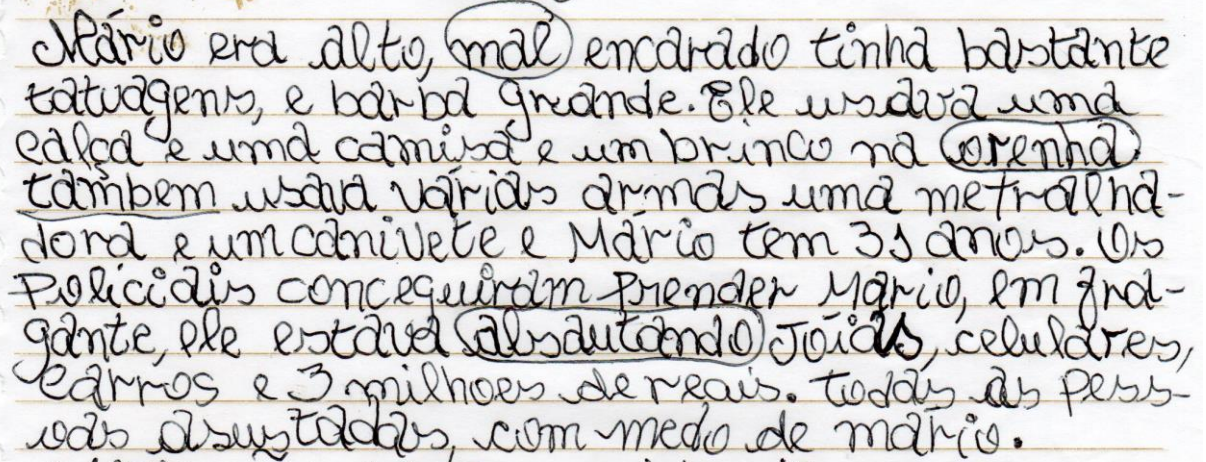 Mário era alto, mal encarado tinha bastante
tatuagens, e barba grande. Ele usava uma
calça e uma camisa e um brinco na orenha
tambem usava várias armas uma metralha-
dora e um canivete e Mário tem 31 anos. Os
Policiais conceguiram prender Mário, em fra-
gante, ele estava alsautando Joias, celulares,
carros e 3 milhoes de reais. todas as pess-
oas asustadas, com medo de mário.